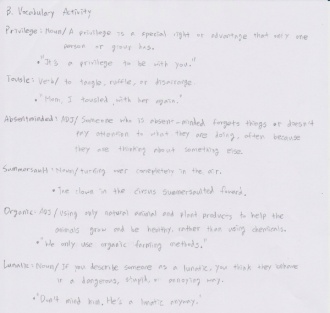 B. Vocabulary Activity
Privilege: Noun/ A privilege is a special right or advantage that only one
person or group has.
• "It's a privilege to be with you."
Tousle: Verb/ to tangle, ruffle, or disarrange.
• "Mom, I tousled with her again."
Absentminded: ADJ/ Someone who is absent-minded forgets things or doesn't
pay attention to what they are doing, often because
they are thinking about something else.
Summersault: Noun/ turning over completely in the air.
• The clown in the circus summersaulted forward.
Organic: ADJ/ Using only natural animal and plant products to help the
animals grow and be healthy, rather than using chemicals.
• "We only use organic farming methods."
Lunatic: Noun/ If you describe someone as a lunatic, you think they behave
in a dangerous, stupid, or annoying way.
• "Don't mind him. He's a lunatic anyway."